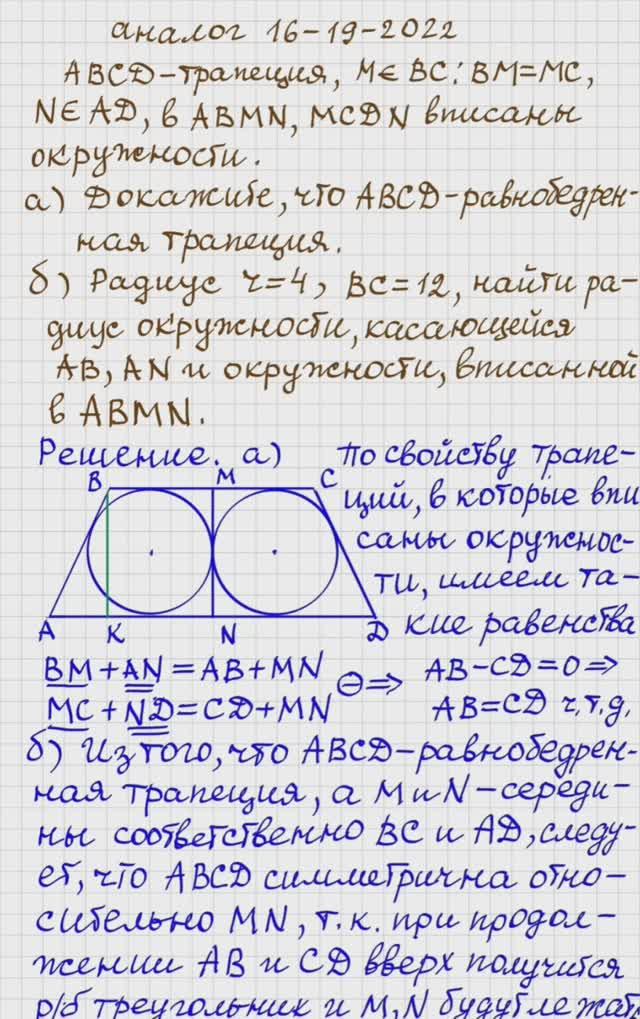 аналог 16-19-2022
ABCD-трапеция, M∈BC: BM=MC,
N∈AD, в ABMN, MCDN вписаны
окружности.
а) Докажите, что ABCD-равнобедрен-
ная трапеция.
б) Радиус r=4, BC=12, найти ра-
диус окружности, касающейся
AB, AN и окружности, вписанной
в ABMN.
Решение. а) По свойству трапе-
B M C
ций, в которые впи
саны окружнос-
ти, имеем та-
A K N D кие равенства
BM+AN=AB+MN ⊖⇒ AB-CD=0⇒
MC+ND=CD+MN AB=CD ч.т.д.
б) Из того, что ABCD-равнобедрен-
ная трапеция, а M и N-середи-
ны соответственно BC и AD, следу-
ет, что ABCD симметрична отно-
сительно MN, т.к. при продол-
жении AB и CD вверх получится
р/б треугольник и M,N будут лежат